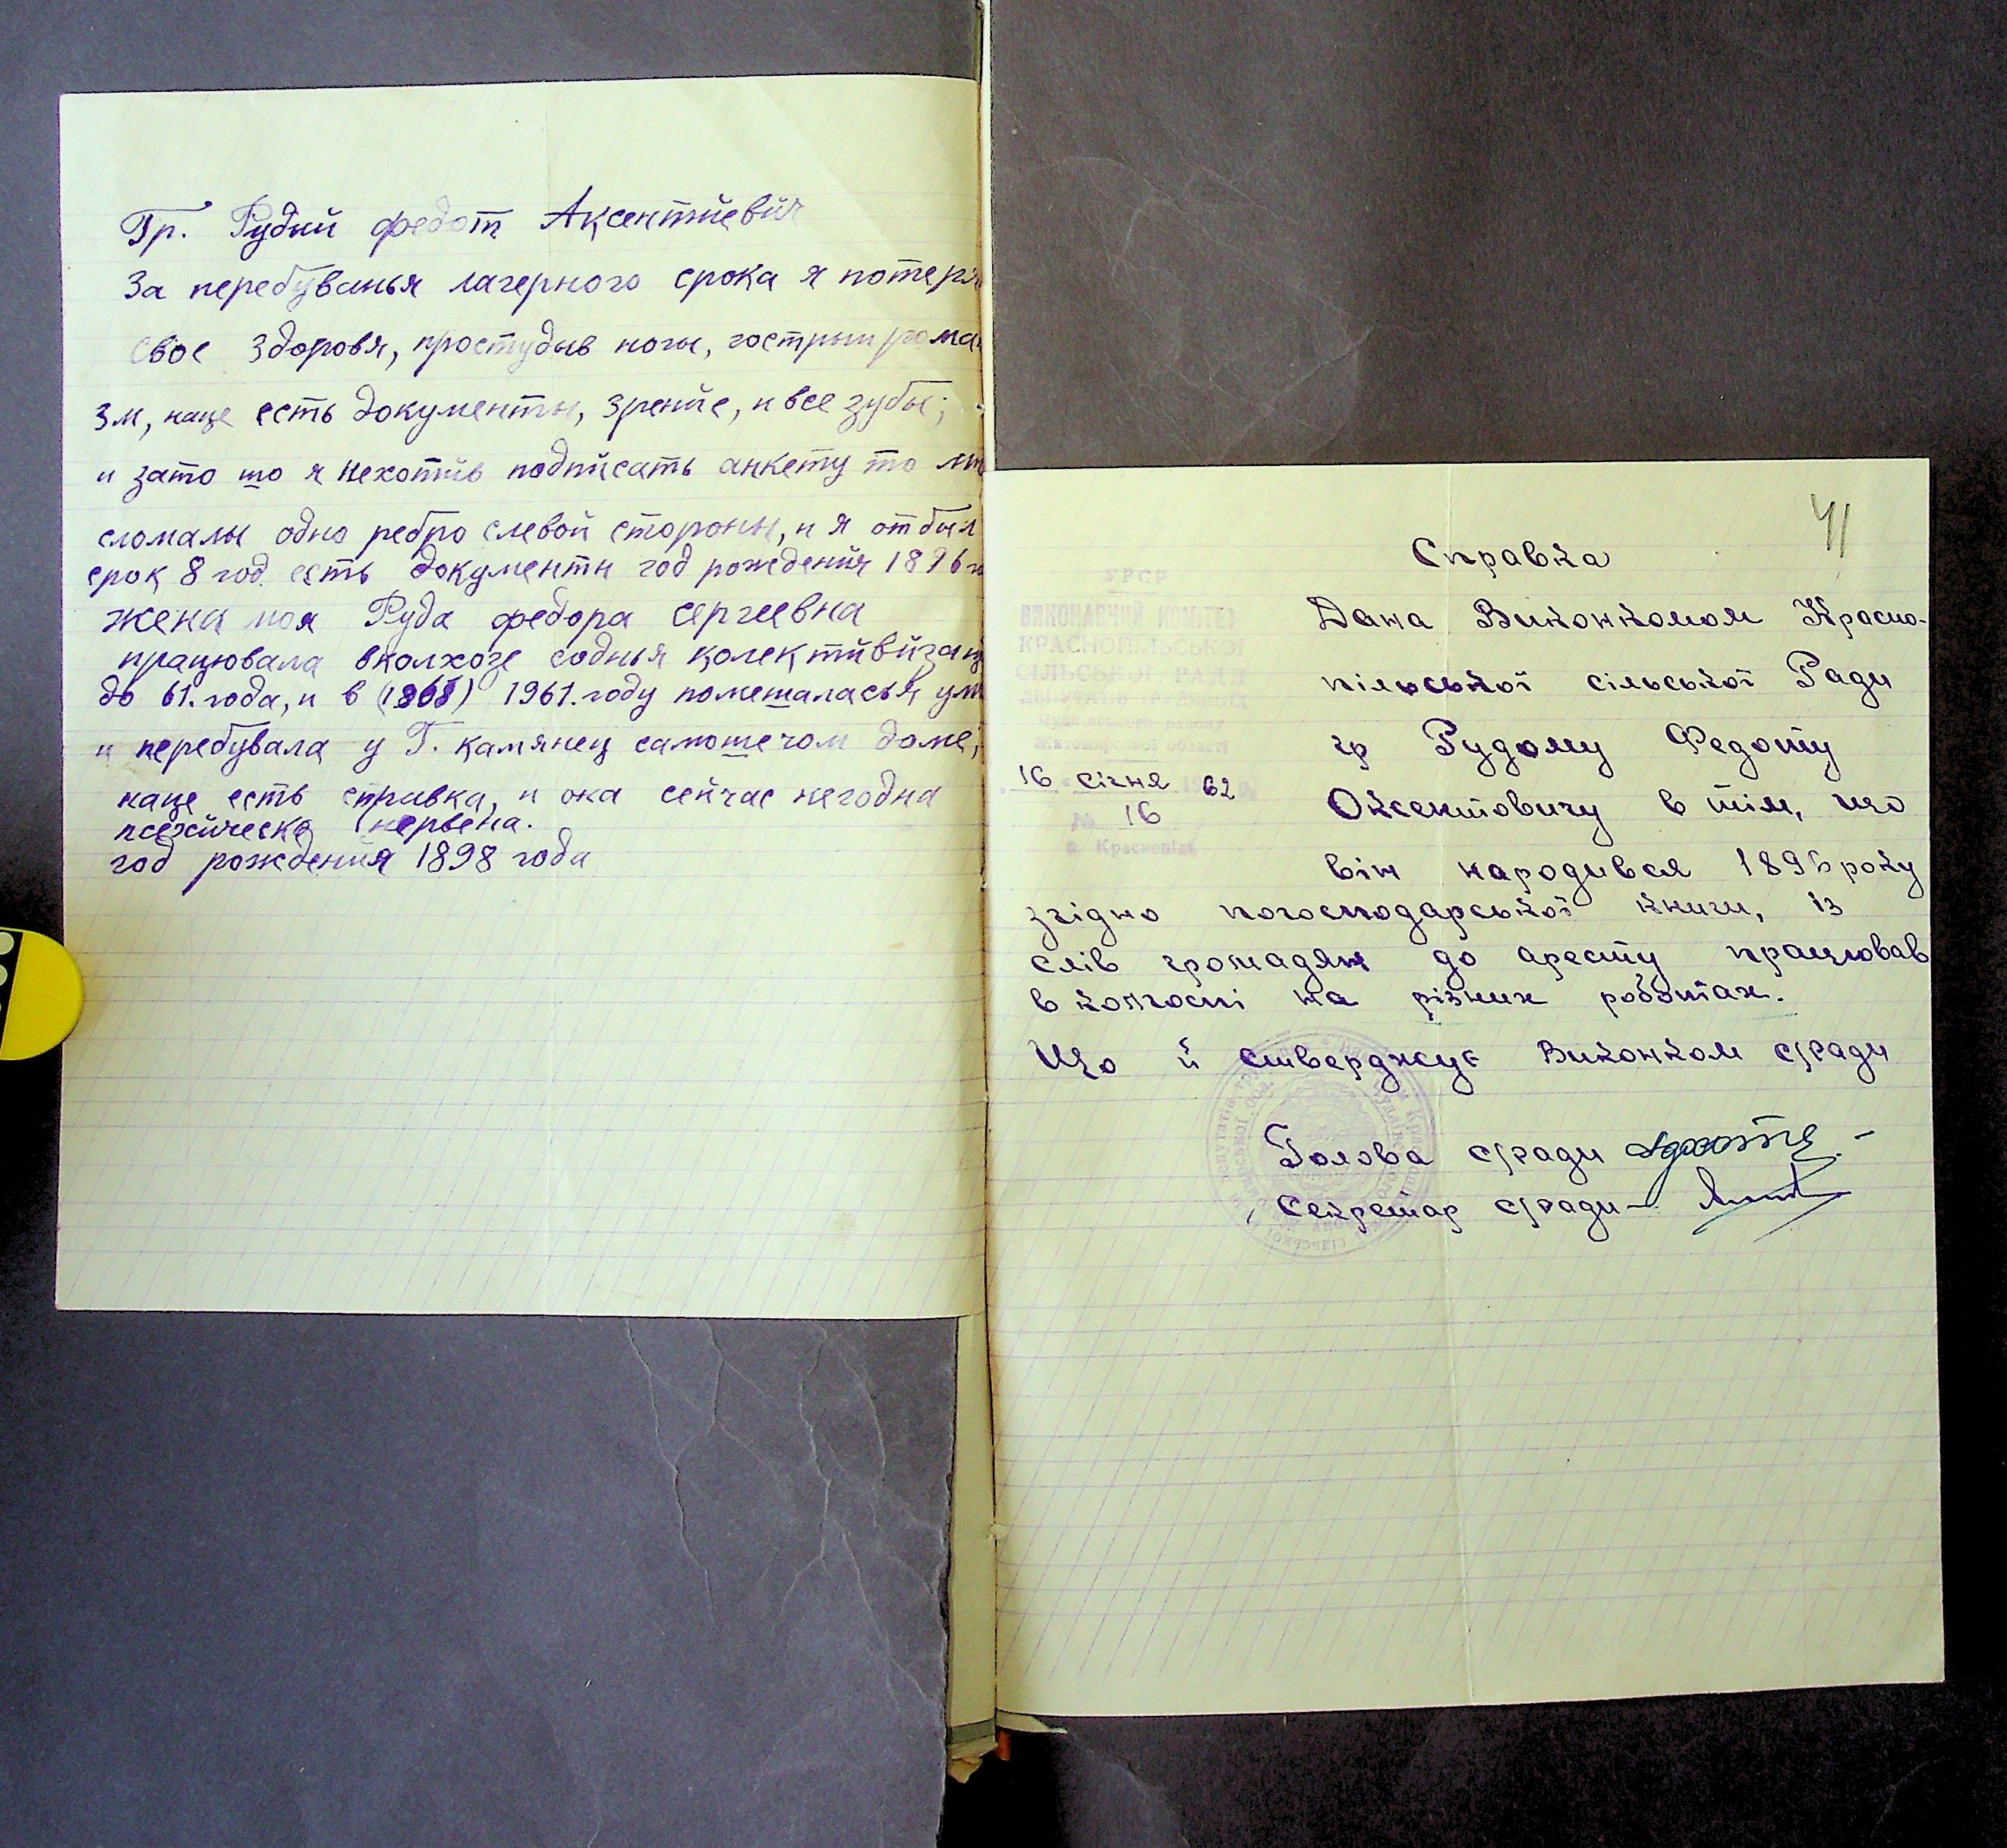 Гр. Рудый федот Аксентйевич
За перебуванья лагерного срока я потеря
свое здоровя, простудыв ногы, гострый рома
зм, наце есть документы, зренйе, и все зубы;
и зато що я нехотйв подпйсать анкету то
сломалы одно ребро слевой стороны, и я отбыл
срок 8 год есть документы год рождения 1896
жена моя Руда федора сергеевна
працювала вколхозе соднья колектйвйзац
до 61. года, и в 1961. году помешаласья
и перебувала у Г. камянец самошечом доме;
наце есть справка, и она сейчас негодна
псехйческе нервена.
год рождения 1898 года
41
Справка
УРСР
ВИКОНАВЧИЙ КОМІТЕТ
КРАСНОПІЛЬСЬКОЇ
СІЛЬСЬКОЇ РАДИ
Житомирської області
16 січня 62
№ 16
с. Краснопіль
Дана Виконкомом Красно-
пільської сільської Ради
гр Рудому Федоту
Оксентовичу в тім, що
він народився 1896 року
згідно погосподарської книги, із
слів громадян до арешту працював
в колгоспі на різних роботах.
Що й стверджує Виконком с/ради
Голова с/ради
Секретар с/ради